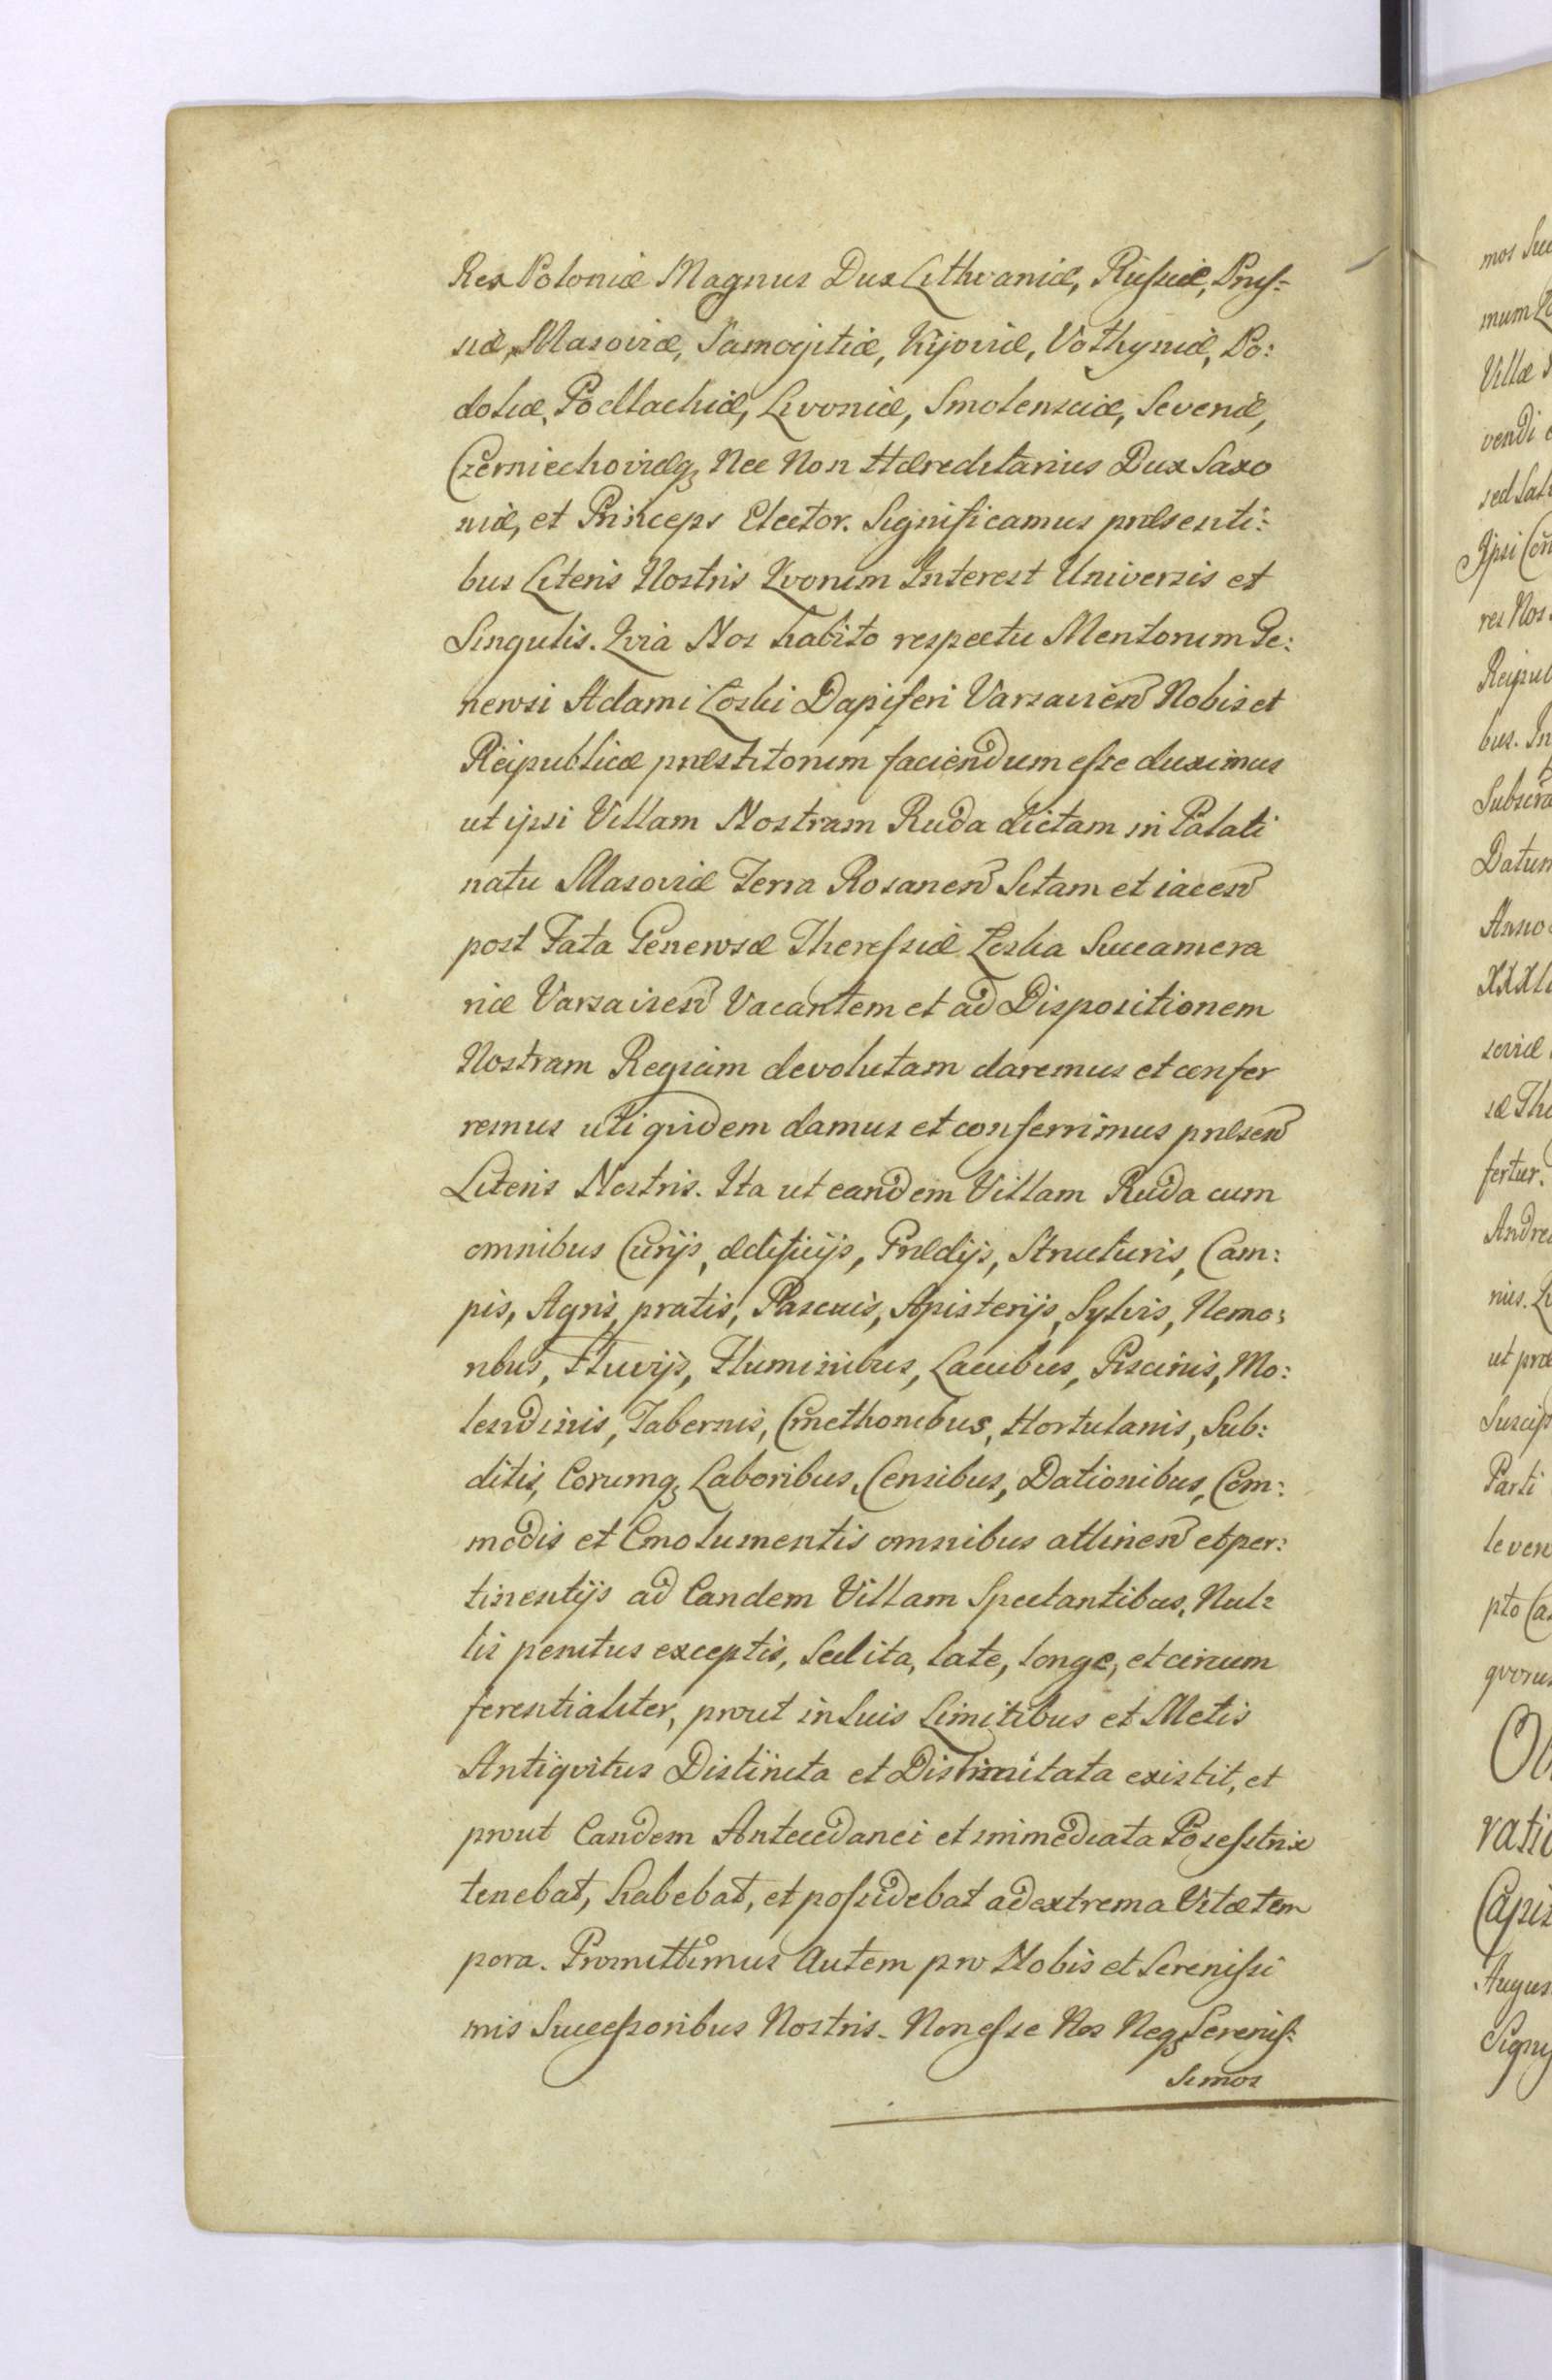 Rex Poloniæ Magnus Dux Lithvaniæ, Russiæ, Prus=
siæ, Masoviæ, Samogitiæ, Kijoviæ, Vołhyniæ, Po:
doliæ, Podlachiæ, Livoniæ, Smolensciæ, Severiæ,
Czerniechoviæq₃ Nec Non Hæreditarius Dux Saxo
niæ, et Princeps Elector. Significamus præsenti:
bus Literis Nostris Qvorum Interest Universis et
Singulis. Qvia Nos habito respectu Meritorum Ge:
nerosi Adami Łoski Dapiferi Varsavien̄ Nobis et
Reipublicæ præstitorum faciendum esse duximus
ut ipsi Villam Nostram Ruda dictam in Palati
natu Masoviæ Terra Rosanen̄ Sitam et iacen̄
post Fata Generosæ Theressiæ Łoska Succamera
riæ Varsavien̄ Vacantem et ad Dispositionem
Nostram Regiam devolutam daremus et confer
remus uti qvidem damus et conferrimus præsen̄
Literis Nostris. Ita ut eandem Villam Ruda cum
omnibus Curijs, ædificijs, Prædijs, Structuris, Cam:
pis, Agris, pratis, Pascuis, Apisterijs, Sylvis, Nemo:
ribus, Fluvijs, Fluminibus, Lacubus, Piscinis, Mo:
lendinis, Tabernis, Cmethonibus, Hortulanis, Sub:
ditis, Eorumq₃ Laboribus, Censibus, Dationibus, Com:
modis et Emolumentis omnibus attinen̄ et per:
tinentijs ad Eandem Villam Spectantibus, Nul:
lis penitus exceptis, Sed ita, late, longe, et circum
ferentialiter, prout in Suis Limitibus et Metis
Antiqvitus Distincta et Dislimitata existit, et
prout Eandem Antecedanei et immediata Posesstrix
tenebat, habebat, et possidebat ad extrema Vitæ tem
pora. Promittimus Autem pro Nobis et Serenissi
mis Successoribus Nostris. Non esse Nos Neq₃ Serenis:
simos